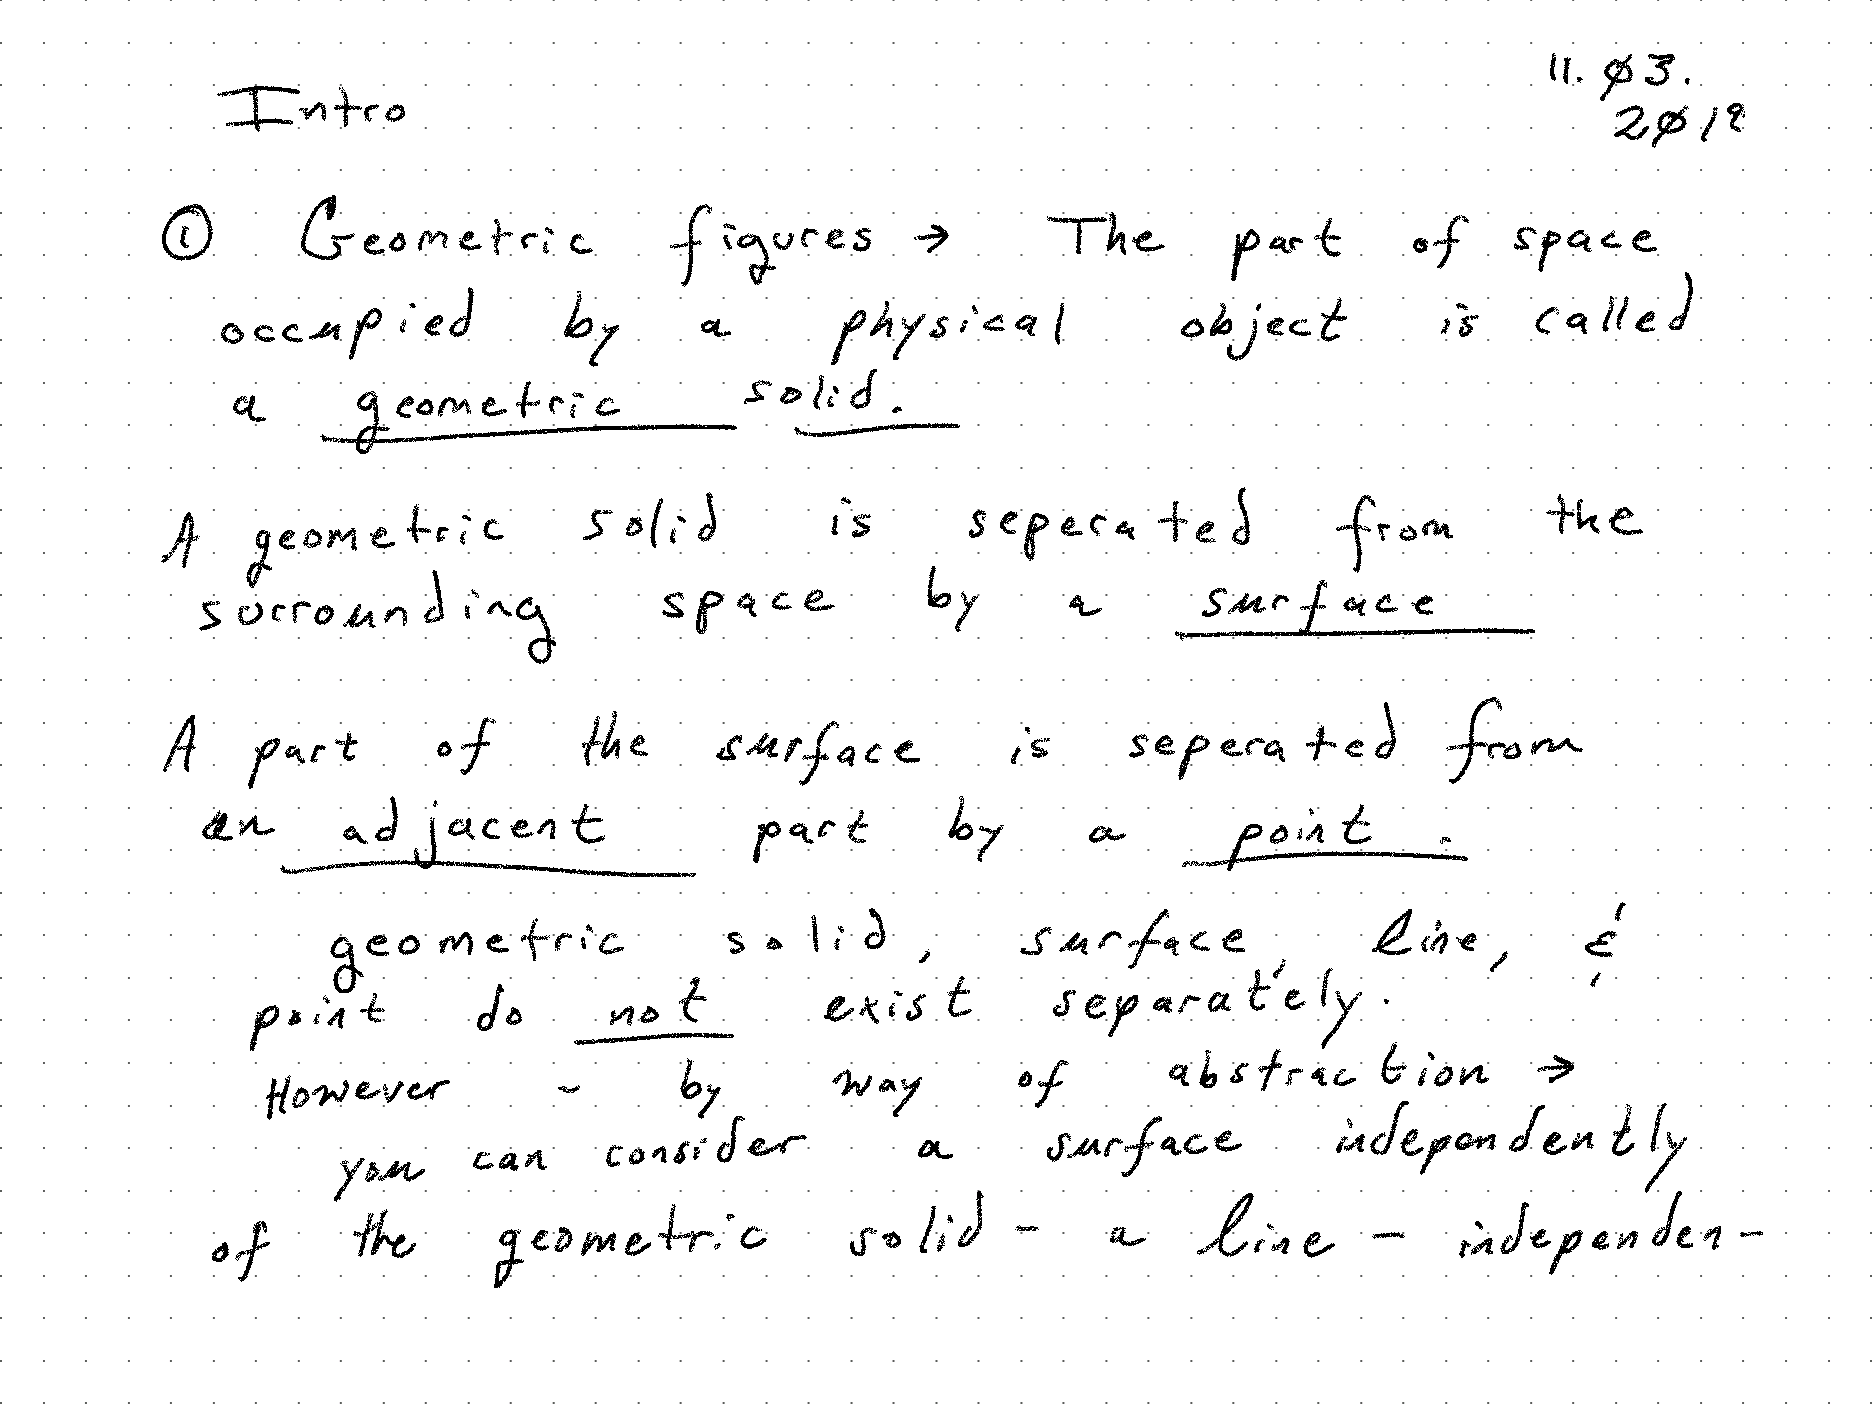 Intro
11. ø3.
2ø18
① Geometric figures → The part of space
occupied by a physical object is called
a geometric solid.
A geometric solid is seperated from the
surrounding space by a surface
A part of the surface is seperated from
an adjacent part by a point.
geometric solid, surface, line, &
point do not exist separately.
However - by way of abstraction →
you can consider a surface independently
of the geometric solid - a line - independen-